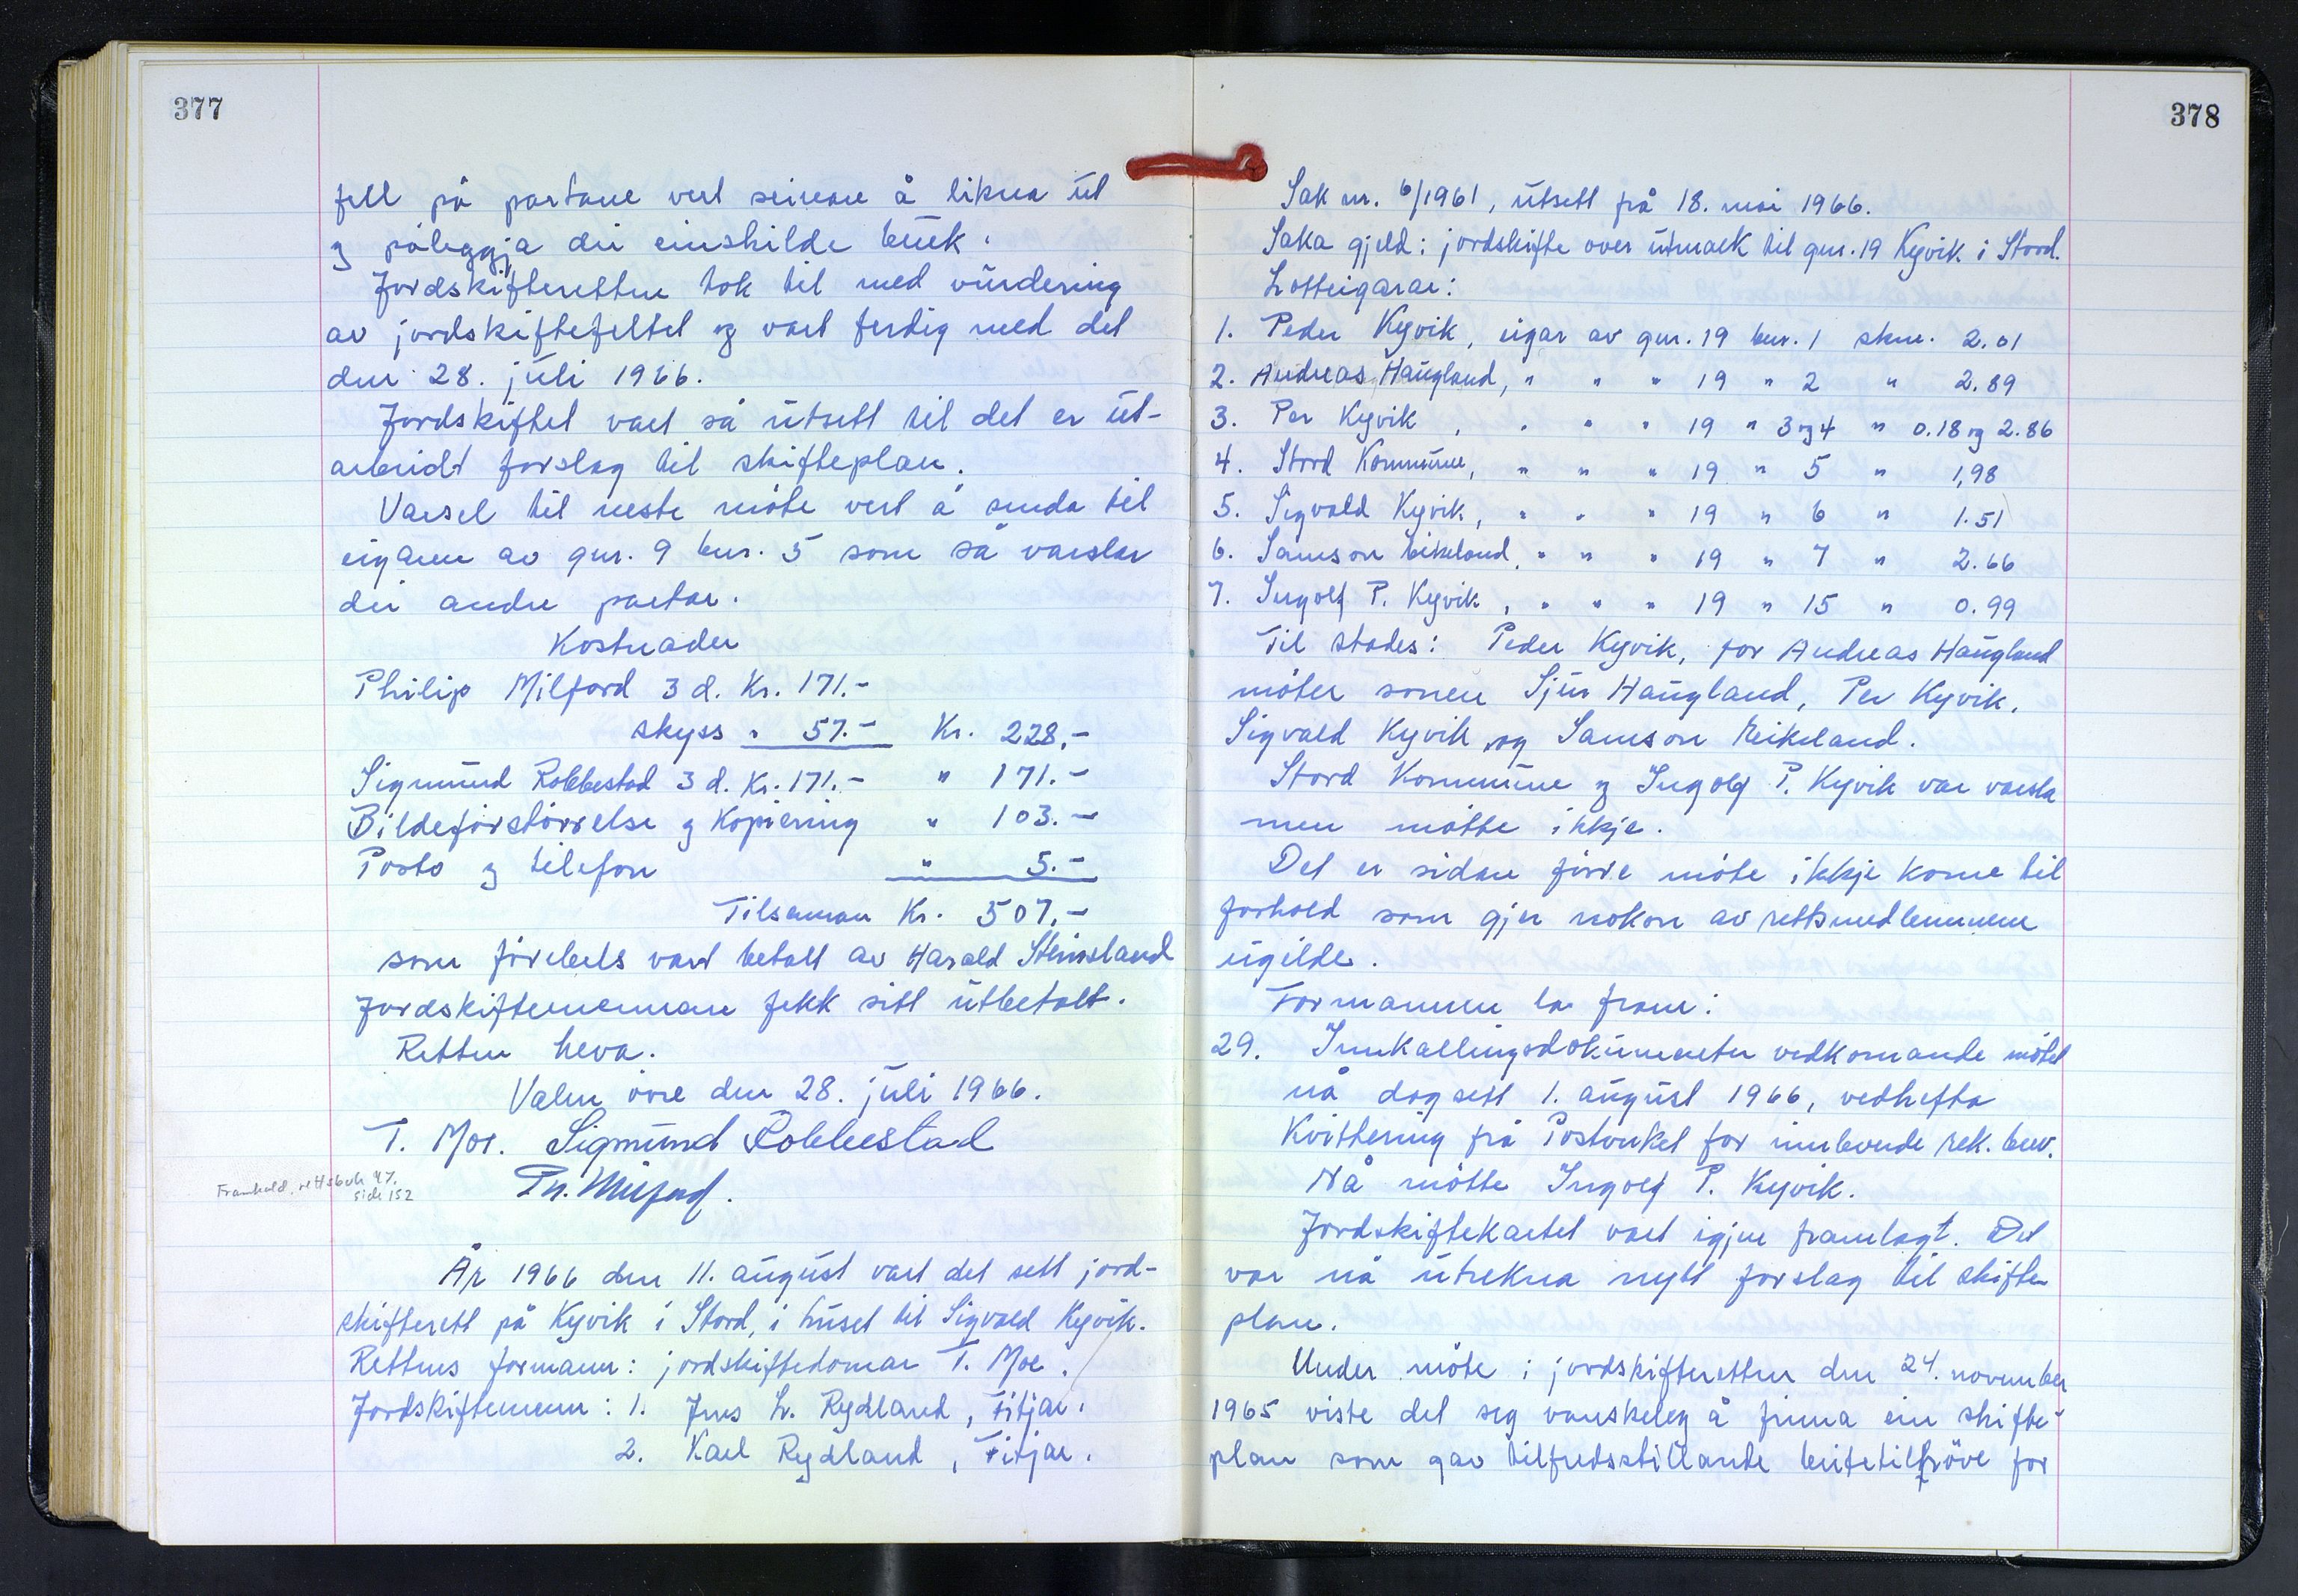 377
fell på partane vert seinare å likna ut
og påleggja dei einskilde bruk.
Jordskifteretten tok til med vurdering
av jordskiftefeltet og vart ferdig med det
den 28. juli 1966.
Jordskiftet vart så utsett til det er ut-
arbeidt forslag til skifteplan.
Varsel til neste møte vert å senda til
eigaren av gnr. 9 bnr. 5 som så varslar
dei andre partar.
Kostnader
Philip Milford 3 d. Kr. 171.-
skyss " 57.- Kr. 228,-
Sigmund Robbestad 3 d. Kr. 171.- " 171.-
Bildeforstörrelse og Kopiering " 103.-
Porto og telefon " 5.-
Tilsaman Kr. 507,-
som förebels vart betalt av Harald Steinsland
Jordskiftemennene fekk sitt utbetalt.
Retten heva.
Valen øvre den 28. juli 1966.
T. Moe. Sigmund Robbestad
Ph. Milford.
Framhald. rettsbok 47.
side 152
År 1966 den 11. august vart det sett jord-
skifterett på Kyvik i Stord, i huset til Sigvald Kyvik.
Rettens formann: jordskiftedomar T. Moe.
Jordskiftemenn: 1. Jens L. Rydland, Fitjar.
2. Karl Rydland, Fitjar.
378
Sak nr. 6/1961, utsett frå 18. mai 1966.
Saka gjeld: jordskifte over utmark til gnr. 19 Kyvik i Stord.
Lotteigarar:
1. Peder Kyvik, eigar av gnr. 19 bnr. 1 skm. 2.01
2. Andreas Haugland, " " " 19 " 2 " 2.89
3. Per Kyvik, " " " 19 " 3 og 4 " 0.18 og 2.86
4. Stord Kommune, " " " 19 " 5 " 1,98
5. Sigvald Kyvik, " " " 19 " 6 " 1.51
6. Samson Eikeland, " " " 19 " 7 " 2.66
7. Ingolf P. Kyvik, " " " 19 " 15 " 0.99
Til stades: Peder Kyvik, for Andreas Haugland
möter sonen Sjur Haugland, Per Kyvik,
Sigvald Kyvik og Samson Eikeland.
Stord Kommune og Ingolf P. Kyvik var varsla
men mötte ikkje.
Det er sidan förre möte ikkje kome til
forhold som gjer nokon av rettsmedlemmene
ugilde.
Formannen la fram:
29. Innkallingsdokumenter vedkomande mötet
nå dagsett 1. august 1966, vedhefta
Kvittering frå Postverket for innlevende rek. brev.
Nå mötte Ingolf P. Kyvik.
Jordskiftekartet vart igjen framlagt. Det
var nå utrekna nytt forslag til skifte
plan.
Under möte i jordskifteretten den 24. november
1965 viste det seg vanskeleg å finna ein skifte-
plan som gav tilfredsstillande beitetilhöve for